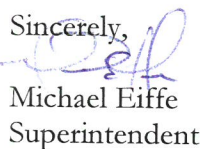 Sincerely,
Michael Eiffe
Superintendent